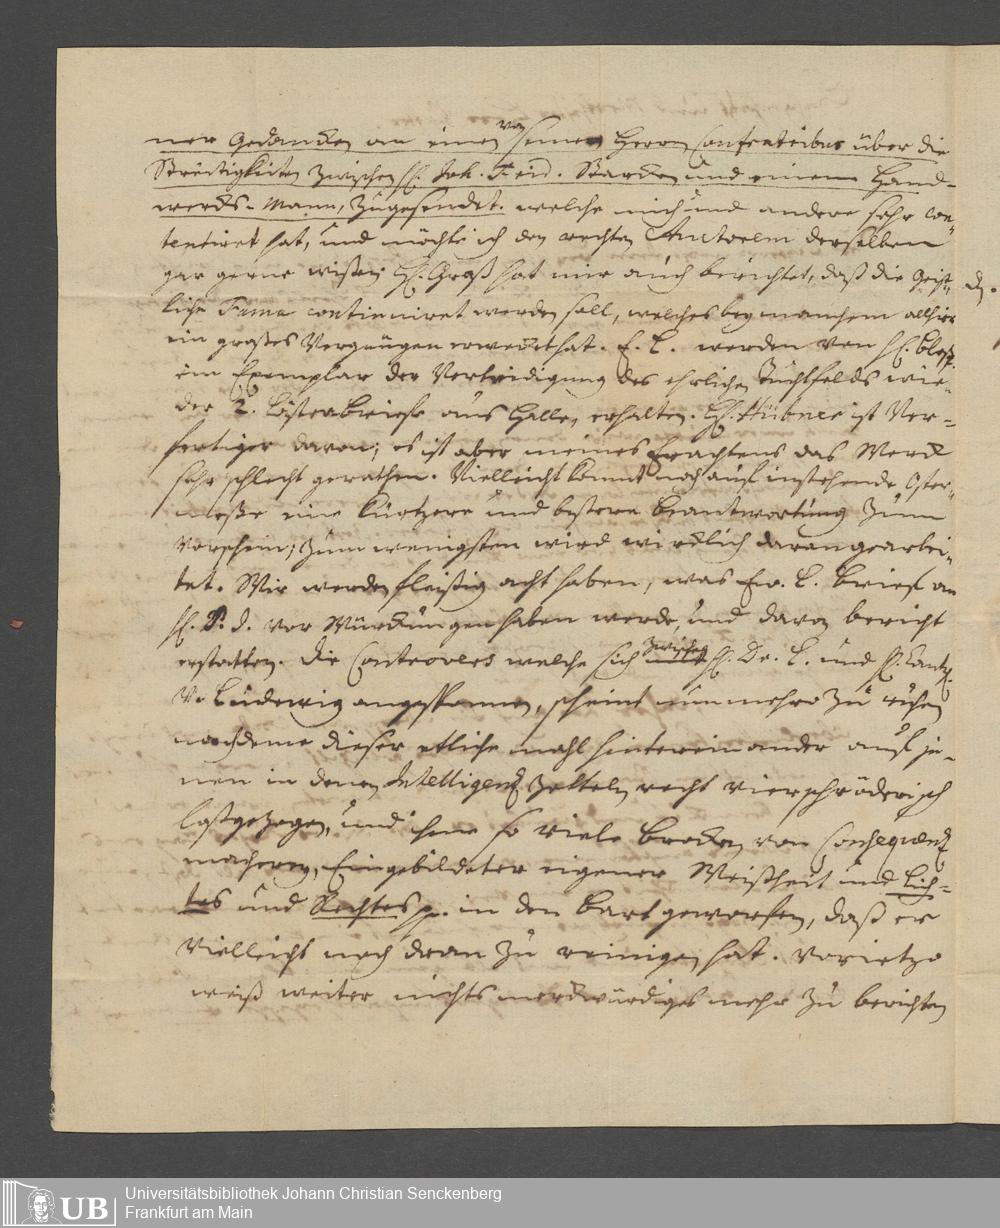 ner Gedancken an einen von seinen Herrn Confratribus über die
Streitigkeiten zwischen H. Joh. Frid. Starcken und einem Hand-
wercks-Mann, zugesendet. welche mich und andere sehr con-
tentiret hat, und möchte ich den rechten Auctorem derselben
gar gerne wißen; H. Groß hat mir auch berichtet, daß die Geist-
liche Fama continuiret werden soll, welches bey manchem allhier
ein großes Vergnügen erwecket hat. E. L. werden von H.
ein Exemplar der Vertheidigung des ehrlichen Tuchtfelds wie-
der 2. Lästerbriefe aus Halle, erhalten. H. Hübner ist Ver-
fertiger davon; es ist aber meines Erachtens das Werck
sehr schlecht gerathen. Vielleicht kommt noch auf instehende Oster-
meße eine kürtzere und bessere Beantwortung zum
Vorschein; zum wenigsten wird wircklich daran gearbei-
tet. Wir werden fleißig acht haben, was Ew. L. Brief an
H. D. vor Würckungen haben werde, und davon bericht
erstatten. Die Controvers welche sich zwischen H. Dr. L. und H. Cantzl.
v. Ludewig angesponnen, scheint nunmehro zu ruhen
nachdeme dieser etliche mahl hintereinander auf je-
nen in denen Intelligentz Zetteln recht vierschröderisch
loßgezogen, und ihme so viele Brocken von Consequentz
macherey, Eingebildeter eigener Weißheit und Lich-
tes und Rechtes p. in den Bart geworfen, daß er
vielleicht noch dran zu reinigen hat. Vorietzo
weiß weiter nichts merckwürdiges mehr zu berichten
UB
Universitätsbibliothek Johann Christian Senckenberg
Frankfurt am Main